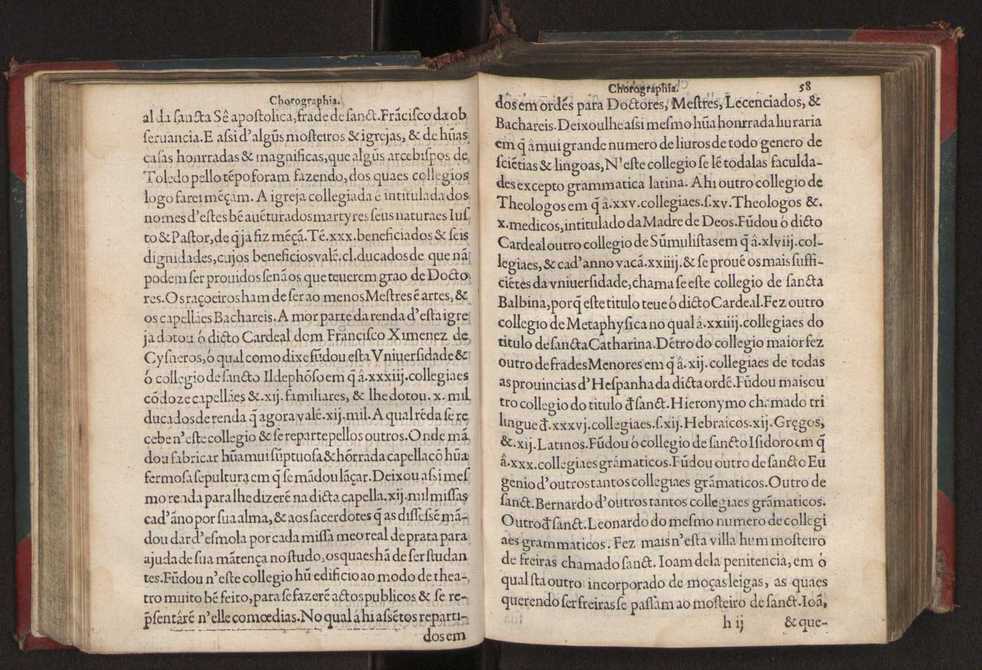 Chorographia.
al da sancta Sê apostolica, frade de sanct. Frãcisco da ob
seruancia. E assi d'algũs mosteiros & igrejas, & de hũas
casas honrradas & magnificas, que algũs arcebispos de
Toledo pello tẽpo foram fazendo, dos quaes collegios
logo farei mẽçam. A igreja collegiada ê intitulada dos
nomes d'estes bẽ auẽturados martyres seus naturaes Ius
to & Pastor, de q̃ ja fiz mẽçã. Tẽ .xxx. beneficiados & seis
dignidades, cujos beneficios valẽ .cl. ducados de que nã
podem ser prouidos senã os que teuerem grao de Docto
res. Os raçoeiros ham de ser ao menos Mestres ẽ artes, &
os capellães Bachareis. A mor parte da renda d'esta igre
ja dotou ó dicto Cardeal dom Frãncisco Ximenez de
Cysneros, ò qual como dixe fũdou esta Vniuersidade &
ó collegio de sancto Ildephõso em q̃ â .xxxiij. collegiaes
cõ doze capellães & .xij. familiares, & lhe dotou .x. mil
ducados de renda q̃ agora valẽ .xij. mil. A qual rẽda se re
cebe n'este collegio & se reparte pellos outros. Onde mã
dou fabricar hũa mui sũptuosa & hõrrada capella cõ hũa
fermosa sepultura em q̃ se mãdou lãçar. Deixou assi mes
mo renda para lhe dizerẽ na dicta capella .xij. mil missas
cad'ãno por sua alma, & aos sacerdotes q̃ as dissessẽ mã-
dou dar d'esmola por cada missa meo real de prata para
ajuda de sua mãtença no studo, os quaes hã de ser studan
tes. Fũdou n'este collegio hũ edificio ao modo de thea-
tro muito bẽ feito, para se fazerẽ actos publicos & se re-
p̃sentarẽ n'elle comœdias. No qual â hi assẽtos reparti-
dos em
Chorographia. 58
dos em ordẽs para Doctores, Mestres, Lecenciados, &
Bachareis. Deixoulhe assi mesmo hũa honrrada liuraria
em q̃ â mui grande numero de liuros de todo genero de
sciẽtias & lingoas, N'este collegio se lẽ todalas faculda-
des excepto grammatica latina. A hi outro collegio de
Theologos em q̃ â .xxv. collegiaes. s. xv. Theologos &.
x. medicos, intitulado da Madre de Deos. Fũdou ó dicto
Cardeal outro collegio de Sũmulistas em q̃ â .xlviij. col-
legiaes, & cad'anno vacã .xxiiij. & se prouẽ os mais suffi-
ciẽtes da vniuersidade, chama se este collegio de sancta
Balbina, porq̃ este titulo teue ô dicto Cardeal. Fez outro
collegio de Metaphysica no qual â .xxiiij. collegiaes do
titulo de sancta Catharina. Dẽtro do collegio maior fez
outro de frades Menores em q̃ â .xij. collegiaes de todas
as prouincias d'Hespanha da dicta ordẽ. Fũdou mais ou
tro collegio do titulo đ sanct. Hieronymo chamado tri
lingue đ .xxxvj. collegiaes. s. xij. Hebraicos. xij. Gręgos,
&. xij. Latinos. Fũdou ó collegio de sancto Isidoro em q̃
â .xxx. collegiaes grãmaticos. Fũdou outro de sancto Eu
genio d'outros tantos collegiaes grãmaticos. Outro de
sanct. Bernardo d'outros tantos collegiaes grãmaticos.
Outro đ sanct. Leonardo do mesmo numero de collegi
aes grammaticos. Fez mais n'esta villa hum mosteiro
de freiras chamado sanct. Ioam dela penitencia, em ò
qual sta outro incorporado de moças leigas, as quaes
querendo ser freiras se passam ao mosteiro de sanct. Ioã,
h ij & que-